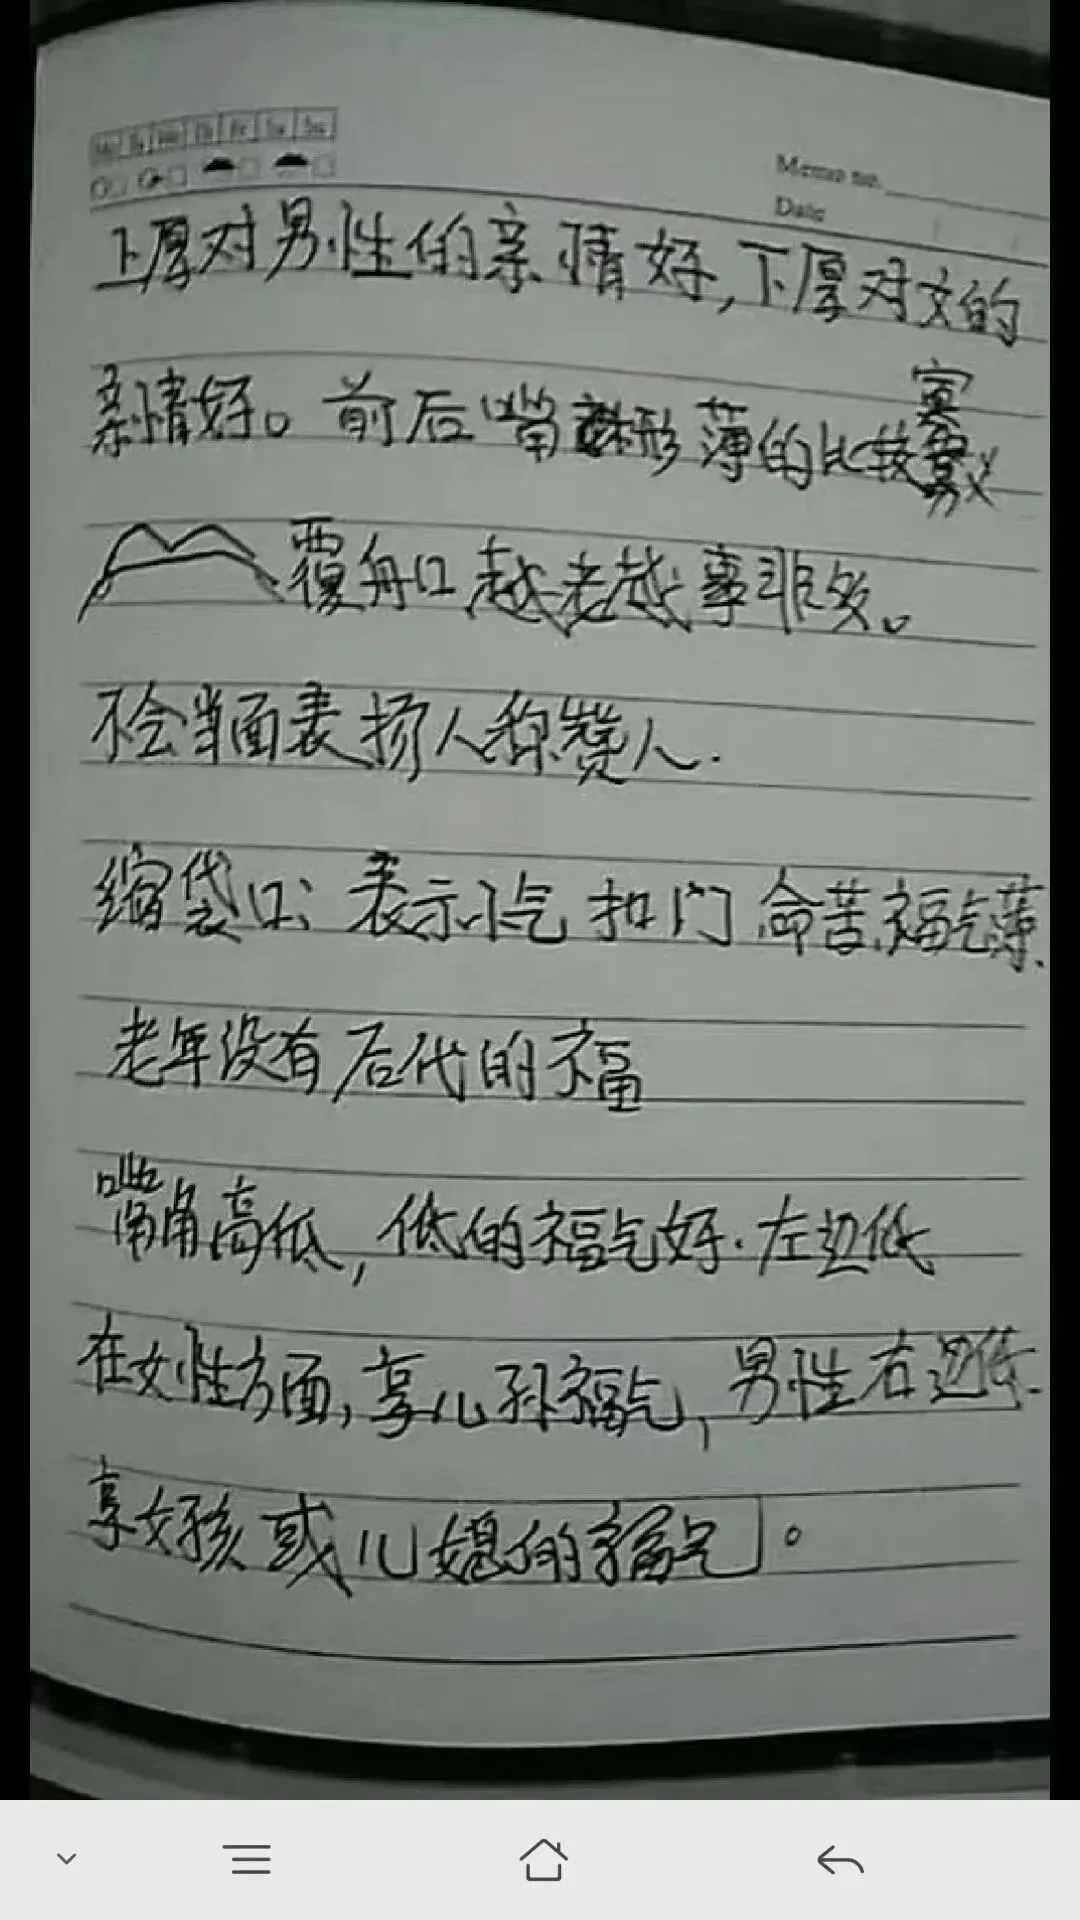 Memo no.
Date
上厚对男性的亲情好,下厚对女的
亲情好。前后嘴形薄的比较寡
覆舟口越老越事非多。
不会当面表扬人称赞人.
缩袋口:表示小气 扣门 命苦.福气薄.
老年没有后代的福
嘴角高低,低的福气好.左边低
在女性方面,享儿孙福气,男性右边低.
享女孩或儿媳的福气。